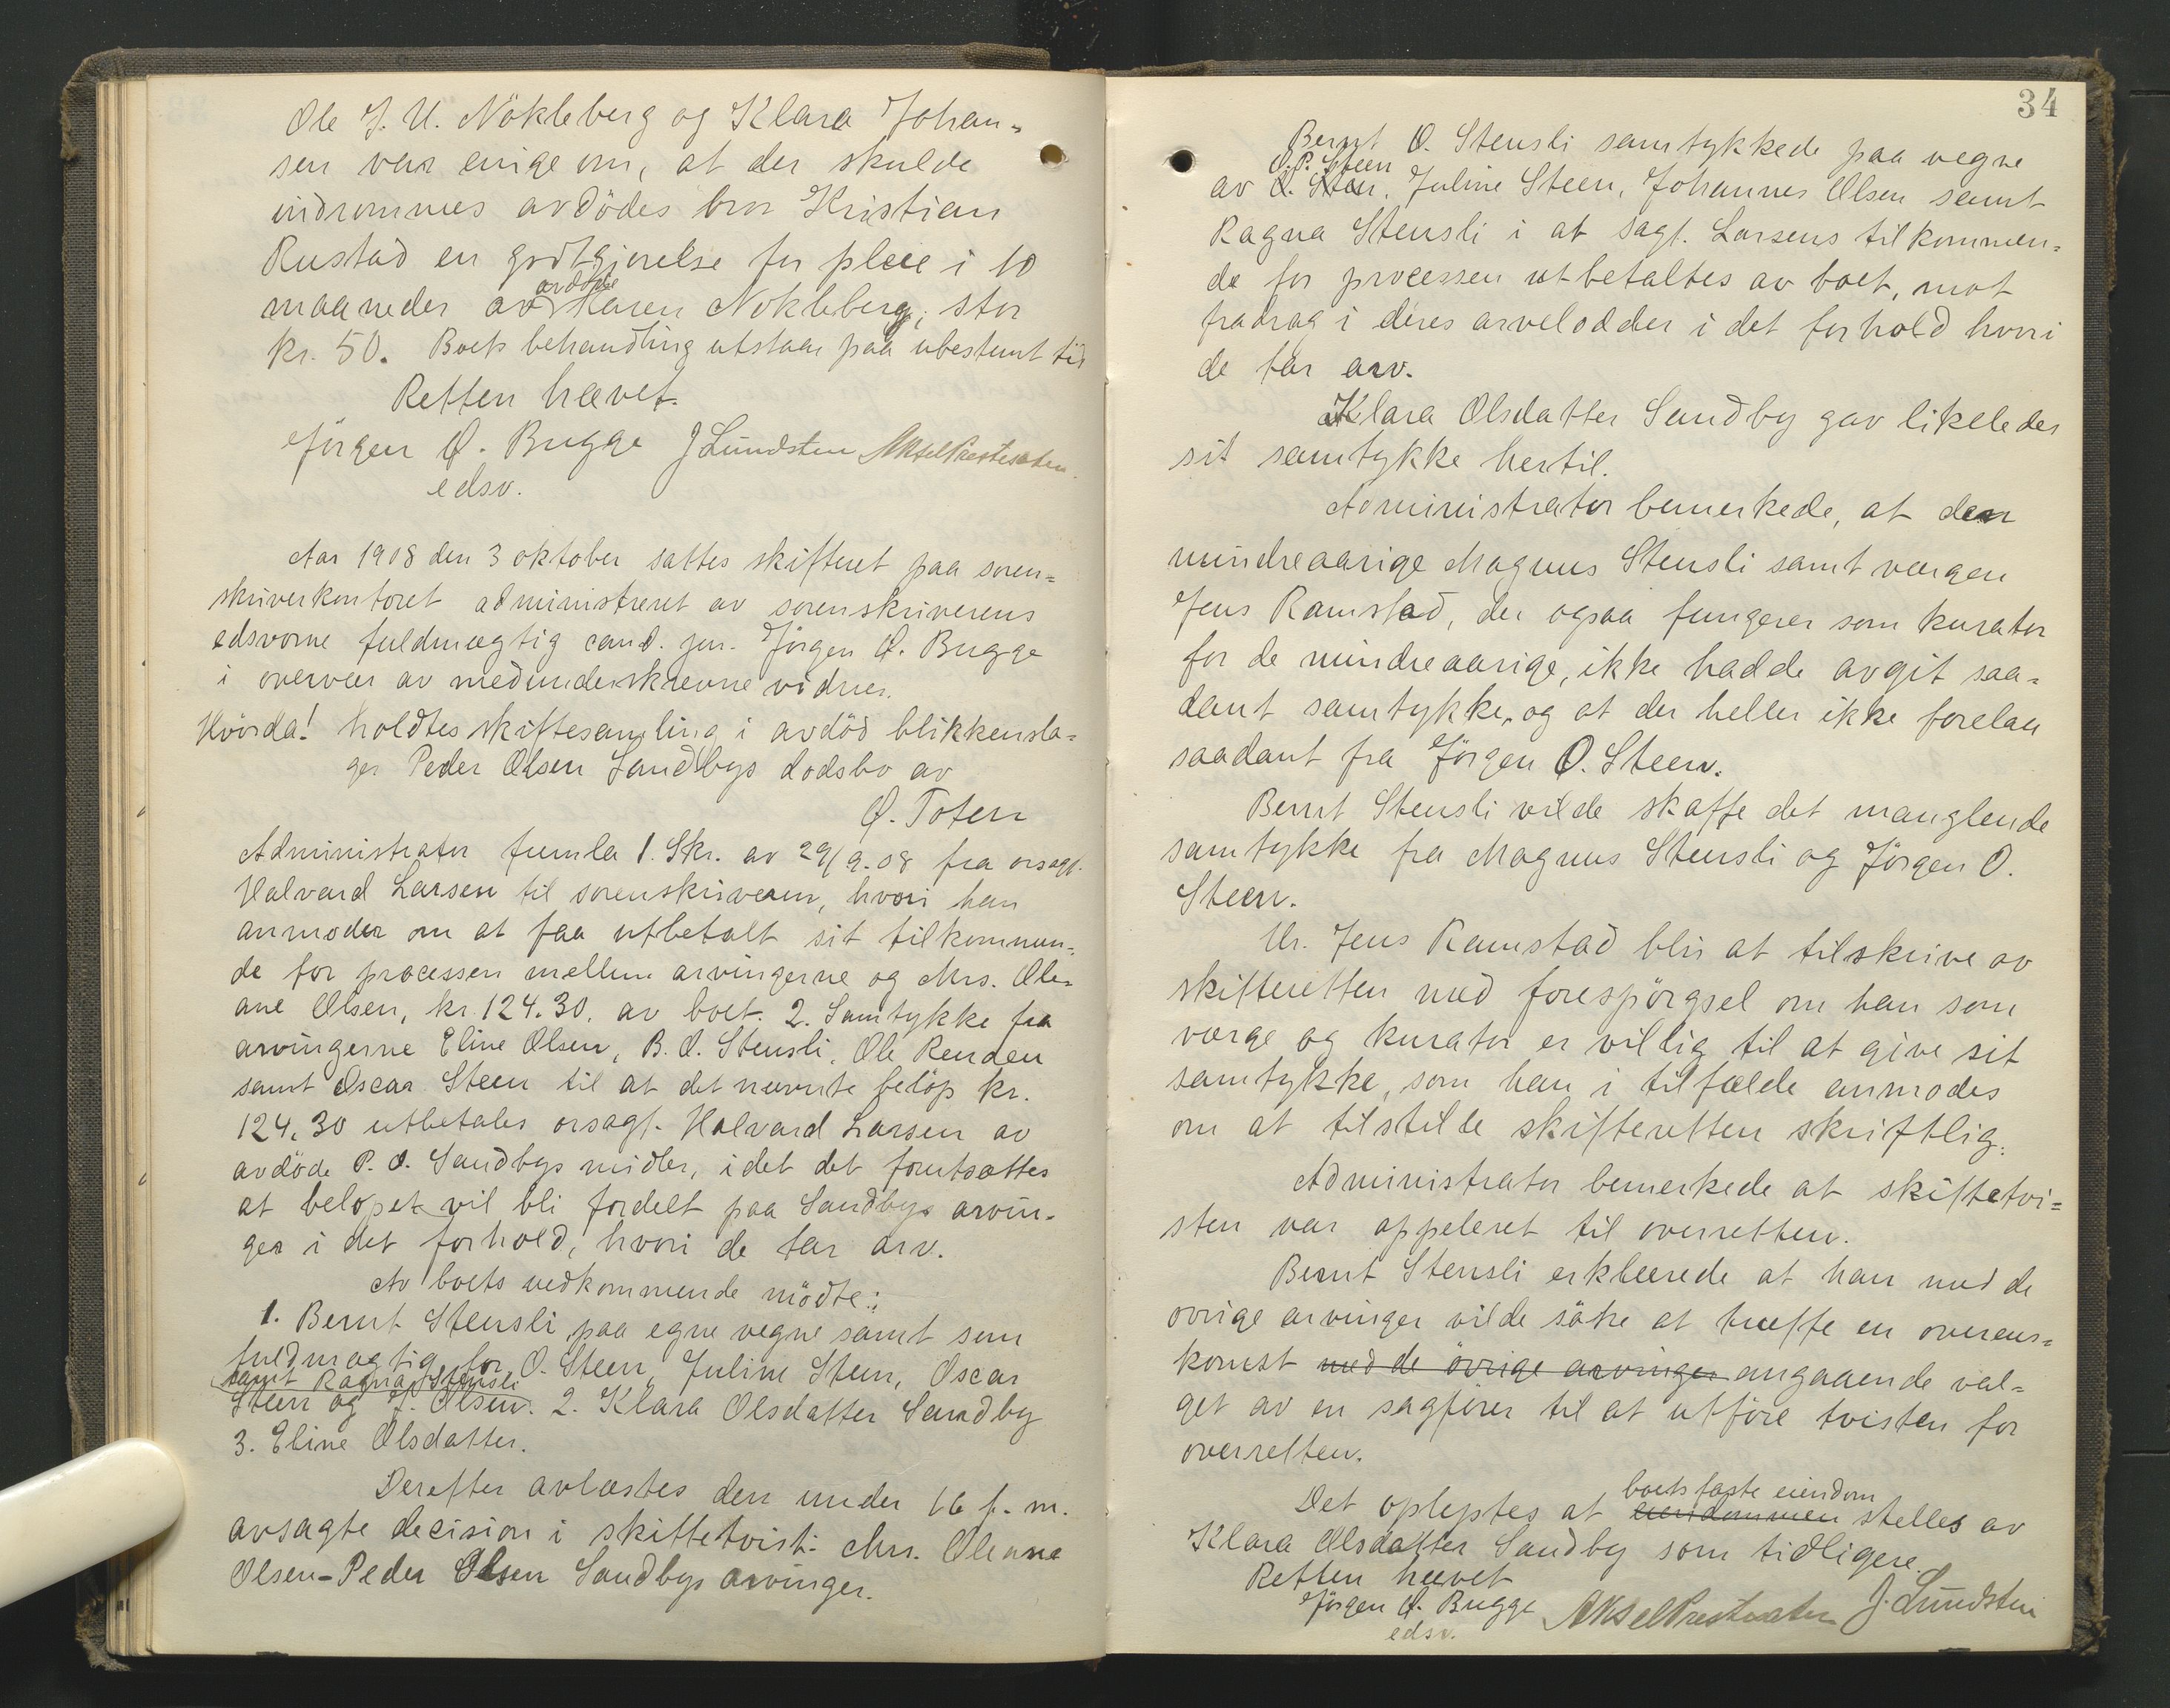 Ole J. U. Nökleberg og Klara Johan-
sen var enige om, at der skulde
indrømmes avdödes bror Kristian
Rustad en godtgjørelse for pleie i 10
maaneder av avdöde Karen Nökleberg, stor
kr. 50. Boets behandling utstaar paa ubestemt tid
Retten hævet.
Jörgen Q. Bugge J Lundsten
edsv.
Aar 1908 den 3 oktober sattes skifteret paa soren-
skriverkontoret administreret av sorenskriverens
edsvorne fuldmægtig cand. jur. Jörgen Q. Bugge
i overvær av medunderskrevne vidner.
Hvorda! holdtes skiftesamling i avdöd blikkensla-
ger Peder Olsen Sandbys dodsbo av
Ö. Toten
Administrator fremla 1. Skr. av 29/9.08 fra orsagf.
Halvard Larsen til sorenskriveren, hvori han
anmoder om at faa utbetalt sit tilkommen-
de for processen mellem arvingerne og Mrs. Ole-
ane Olsen, kr. 124.30. av boet. 2. Samtykke fra
arvingerne Eline Olsen, B. O. Stensli, Ole Renden
samt Oscar Steen til at det nævnte belöp kr.
124.30 utbetales orsagf. Halvard Larsen av
avdöde P. O. Sandbys midler, idet det forutsættes
at belopet vil bli fordelt paa Sandbys arvin-
ger i det forhold, hvori de tar arv.
Av boets vedkommende mödte:
1. Bernt Stensli paa egne vegne samt som
fuldmægtig for O. Steen, Juline Steen, Oscar
samt Ragna Stensli
Steen og J. Olsen. 2. Klara Olsdatter Sandby
3. Eline Olsdatter.
Derefter avlæstes den under 16 f. m.
avsagte decision i skiftetvist: Mrs. Oleane
Olsen-Peder Olsen Sandbys arvinger.
34
Bernt O. Stensli samtykkede paa vegne
O.P. Steen
av O. Steen, Juline Steen, Johannes Olsen samt
Ragna Stensli i at sagf. Larsens tilkommen-
de for processen utbetaltes av boet, mot
fradrag i deres arvelodder i det forhold hvori
de tar arv.
Klara Olsdatter Sandby gav likeledes
sit samtykke hertil.
Administrator bemerkede, at den
mindreaarige Magnus Stensli samt vergen
Jens Ramstad, der ogsaa fungerer som kurator
for de mindreaarige, ikke hadde avgit saa-
dant samtykke, og at der heller ikke forelaa
saadant fra Jörgen O. Steen.
Bernt Stensli vilde skaffe det manglende
samtykke fra Magnus Stensli og Jörgen O.
Steen.
Hr. Jens Ramstad blir at tilskrive av
skifteretten med forespörgsel om han som
værge og kurator er villig til at give sit
samtykke, som han i tilfælde anmodes
om at tilstille skifteretten skriftlig.
Administrator bemerkede at skiftetvi-
sten var appeleret til overretten.
Bernt Stensli erklærede at han med de
ovrige arvinger vilde söke at træffe en overens-
komst med de övrige arvinger angaaende val-
get av en sagförer til at utföre tvisten for
overretten.
boets faste eiendom
Det oplystes at eiendommen stelles av
Klara Olsdatter Sandby som tidligere.
Retten hævet
Jörgen Q. Bugge J. Lundsten
edsv.